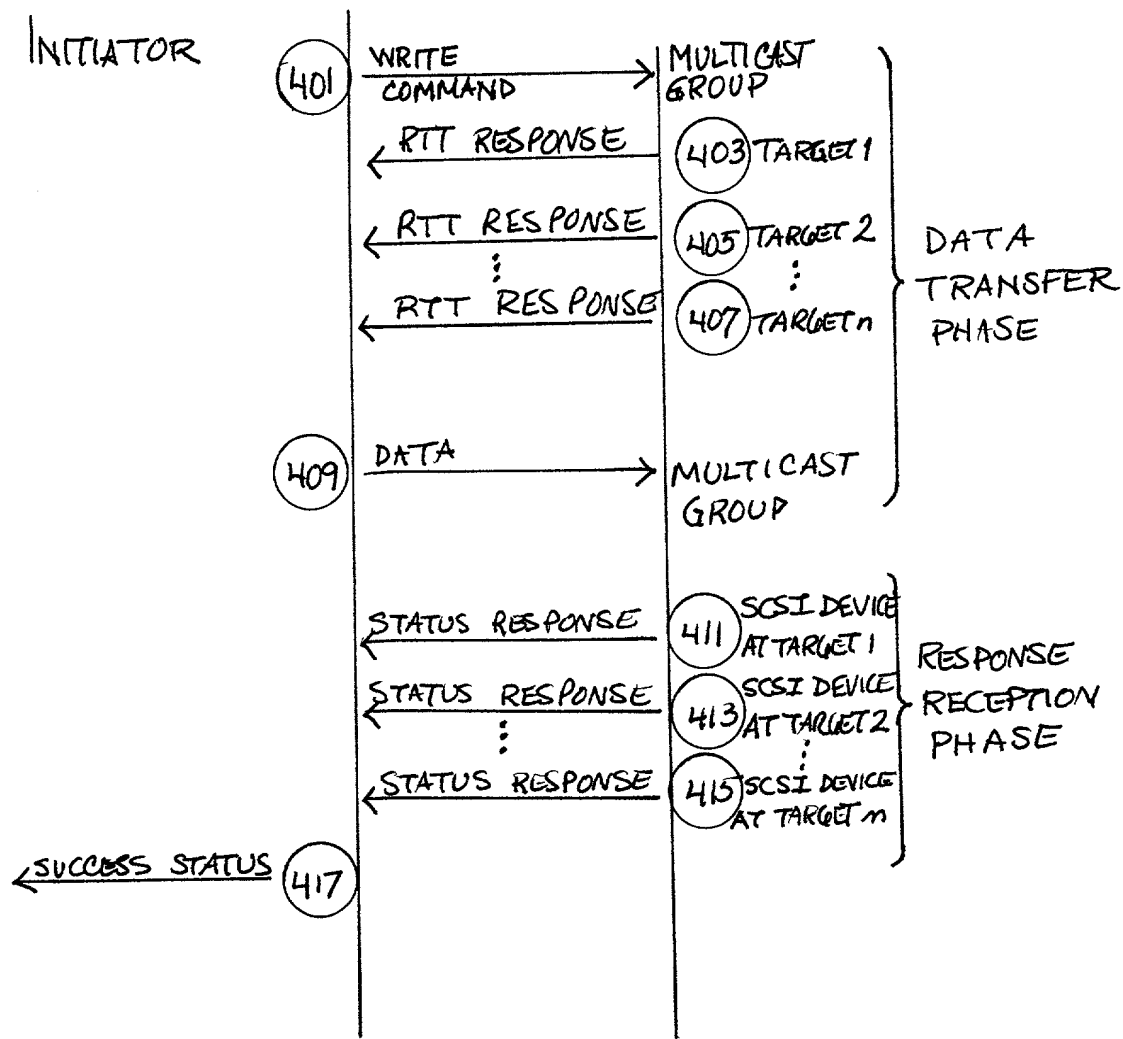 INITIATOR
401
WRITE
COMMAND
MULTICAST
GROUP
RTT RESPONSE
403
TARGET 1
RTT RESPONSE
405
TARGET 2
RTT RESPONSE
407
TARGET n
DATA
TRANSFER
PHASE
409
DATA
MULTICAST
GROUP
STATUS RESPONSE
411
SCSI DEVICE
AT TARGET 1
STATUS RESPONSE
413
SCSI DEVICE
AT TARGET 2
STATUS RESPONSE
415
SCSI DEVICE
AT TARGET n
RESPONSE
RECEPTION
PHASE
SUCCESS STATUS
417